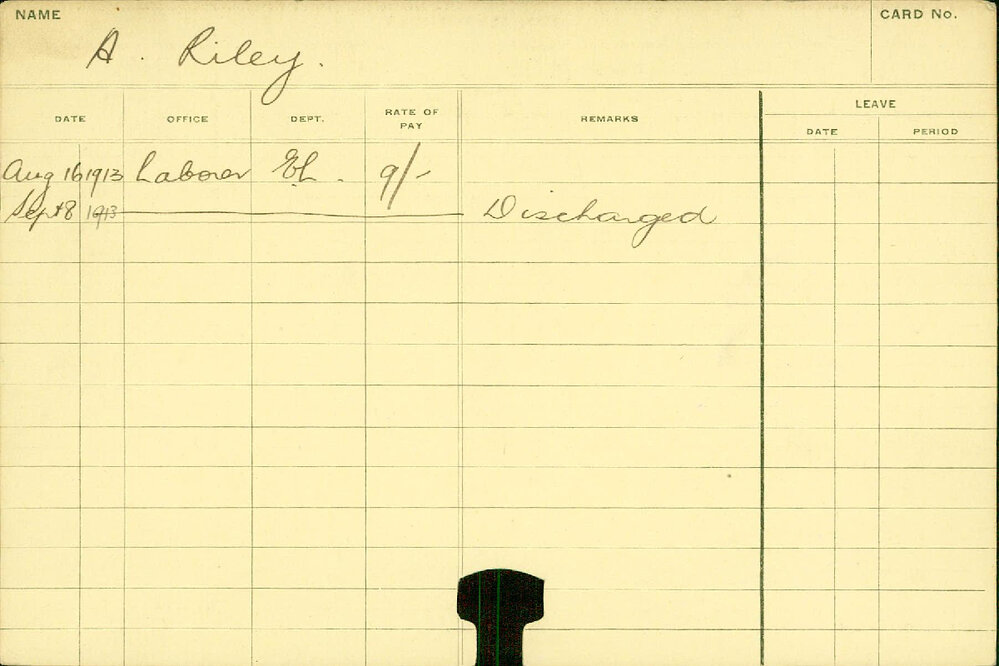 NAME
CARD No.
A. Riley.
DATE OFFICE DEPT. RATE OF PAY REMARKS LEAVE
DATE PERIOD
Aug 16 1913 Laborer 9/-
Sept 8 1913 Discharged